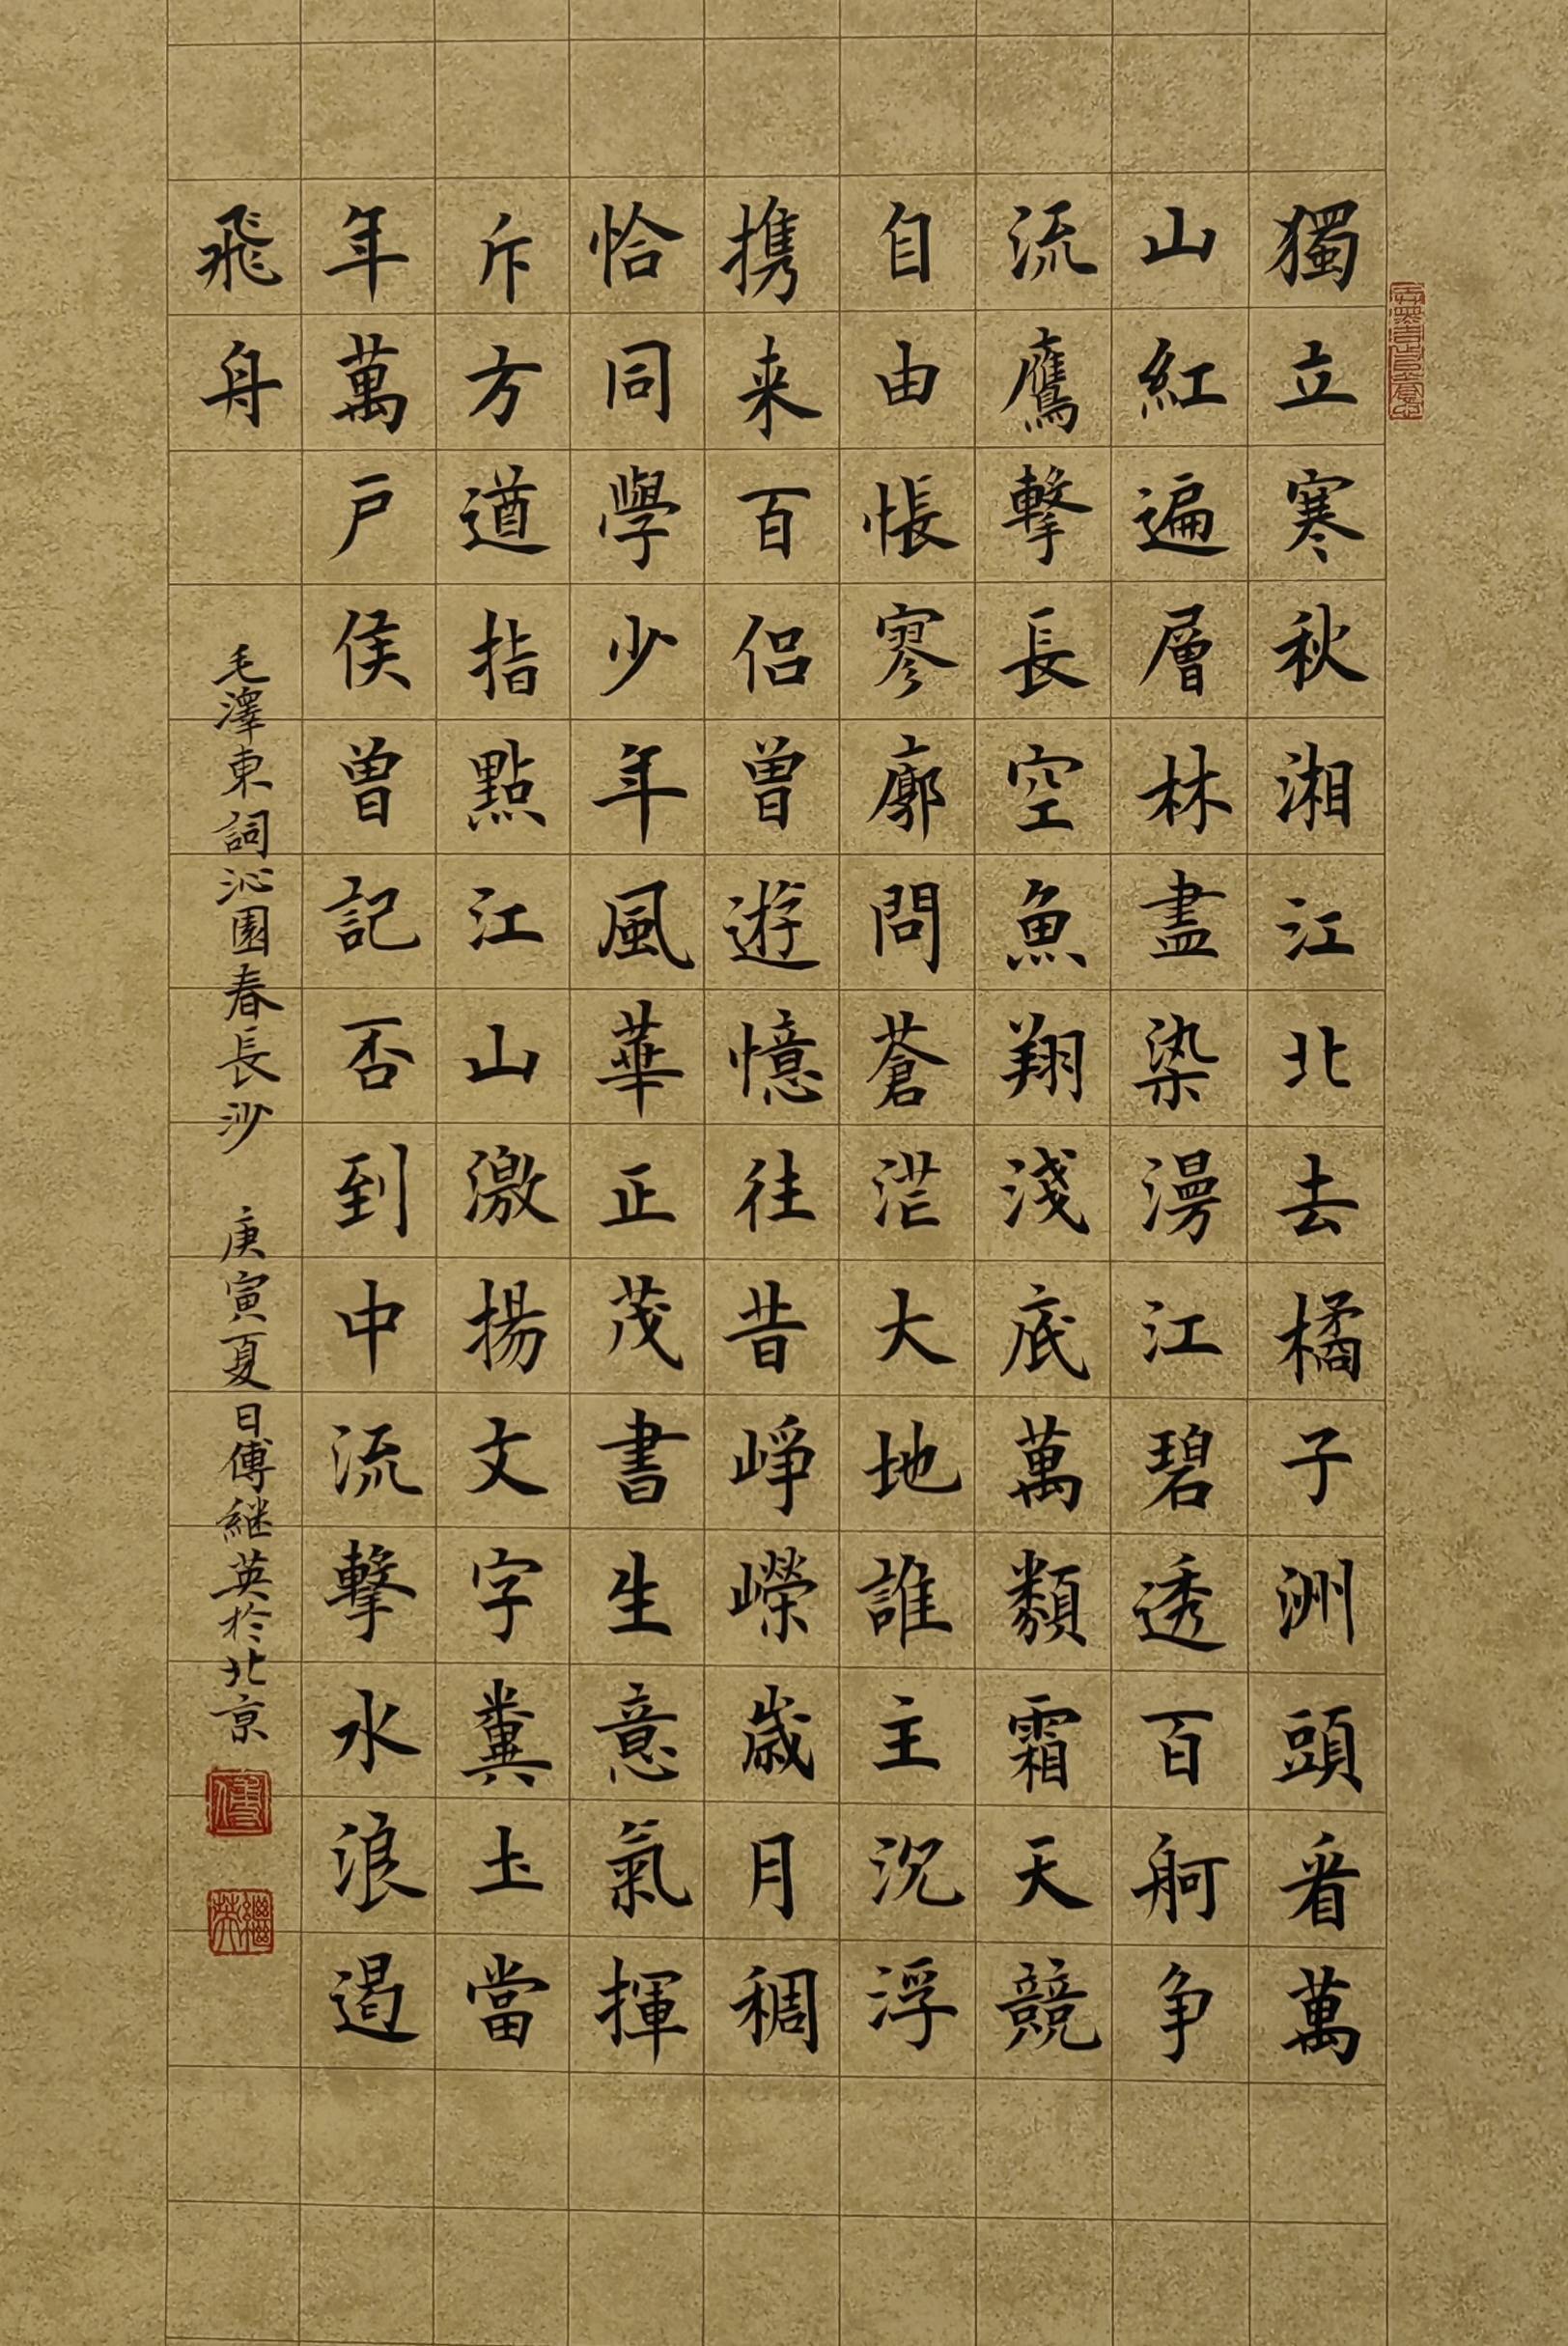 獨立寒秋湘江北去橘子洲頭看萬
山紅遍層林盡染漫江碧透百舸争
流鷹擊長空魚翔淺底萬類霜天競
自由悵寥廓問蒼茫大地誰主沉浮
携来百侣曾遊憶往昔崢嶸歲月稠
恰同學少年風華正茂書生意氣揮
斥方遒指點江山激揚文字糞土當
年萬户侯曾記否到中流擊水浪遏
飛舟
毛澤東詞沁園春長沙 庚寅夏日傅継英於北京
傅
繼英